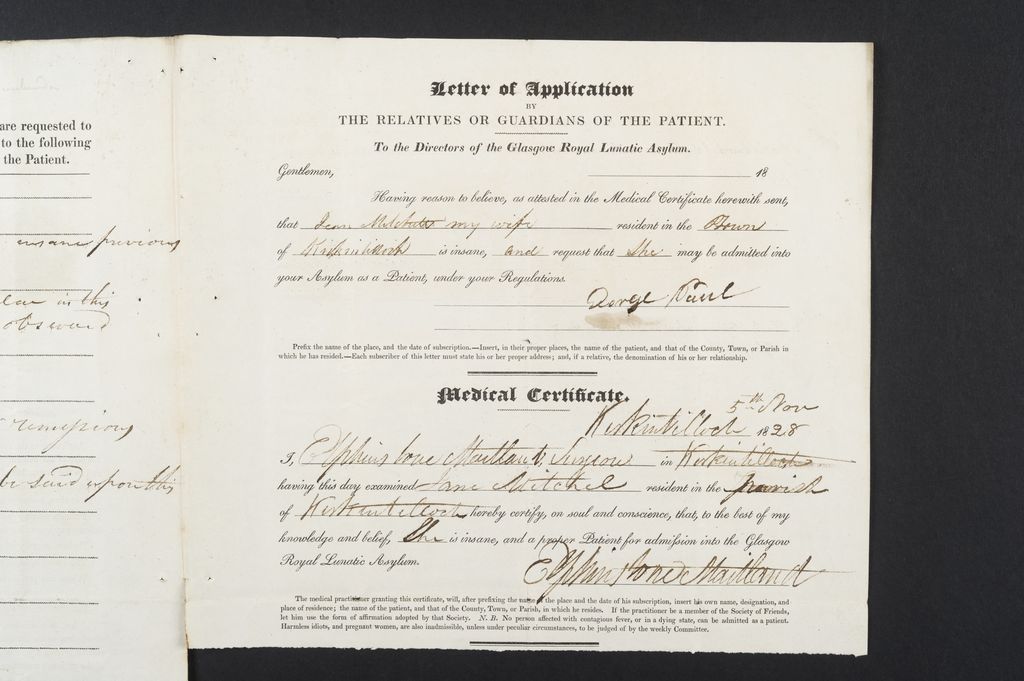 are requested to
to the following
the Patient.
insane previous
in this
remissions
be said upon this
Letter of Application
BY
THE RELATIVES OR GUARDIANS OF THE PATIENT.
To the Directors of the Glasgow Royal Lunatic Asylum.
Gentlemen, 18
Having reason to believe, as attested in the Medical Certificate herewith sent,
that Jean Mitchell my wife resident in the Town
of Kirkintilloch is insane, and request that She may be admitted into
your Asylum as a Patient, under your Regulations.
George Paul
Prefix the name of the place, and the date of subscription.—Insert, in their proper places, the name of the patient, and that of the County, Town, or Parish in
which he has resided.—Each subscriber of this letter must state his or her proper address; and, if a relative, the denomination of his or her relationship.
Medical Certificate.
5th Nov
Kirkintilloch 1828
I, Elphinstone Maitland, Surgeon in Kirkintilloch
having this day examined Jane Mitchel resident in the Parish
of Kirkintilloch hereby certify, on soul and conscience, that, to the best of my
knowledge and belief, She is insane, and a proper Patient for admission into the Glasgow
Royal Lunatic Asylum.
Elphinstone Maitland
The medical practitioner granting this certificate, will, after prefixing the name of the place and the date of his subscription, insert his own name, designation, and
place of residence; the name of the patient, and that of the County, Town, or Parish, in which he resides. If the practitioner be a member of the Society of Friends,
let him use the form of affirmation adopted by that Society. N. B. No person affected with contagious fever, or in a dying state, can be admitted as a patient.
Harmless idiots, and pregnant women, are also inadmissible, unless under peculiar circumstances, to be judged of by the weekly Committee.